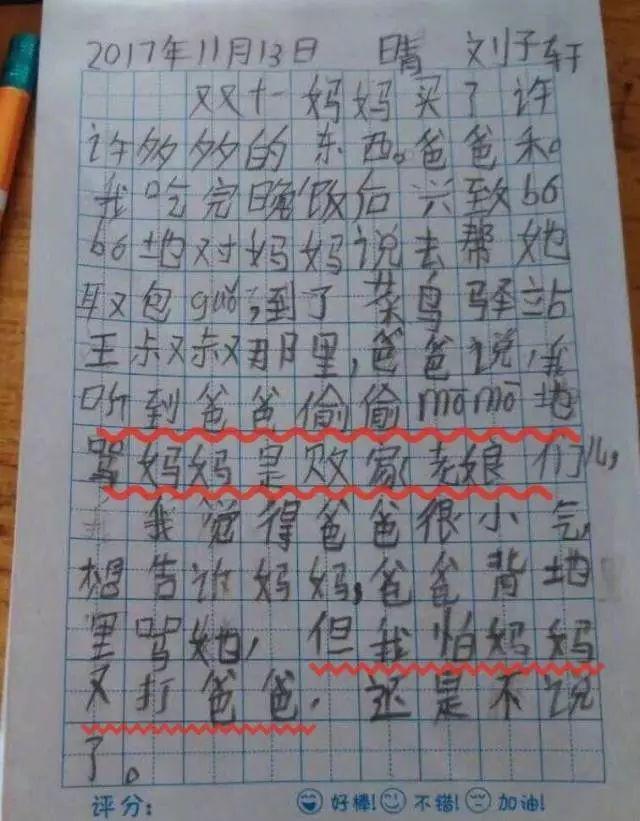 2017年11月13日 晴 刘子轩
双十一妈妈买了许
许多多的东西。爸爸和。
我吃完晚饭后兴致bó
bó地对妈妈说去帮她
取包guǒ,到了菜鸟驿站
王叔叔那里,爸爸说,我
听到爸爸偷偷mōmō地
骂妈妈是败家老娘们儿,
我觉得爸爸很小气,
想告诉妈妈,爸爸背地
里骂她,但我怕妈妈
又打爸爸,还是不说
了。
评分: 好棒! 不错! 加油!